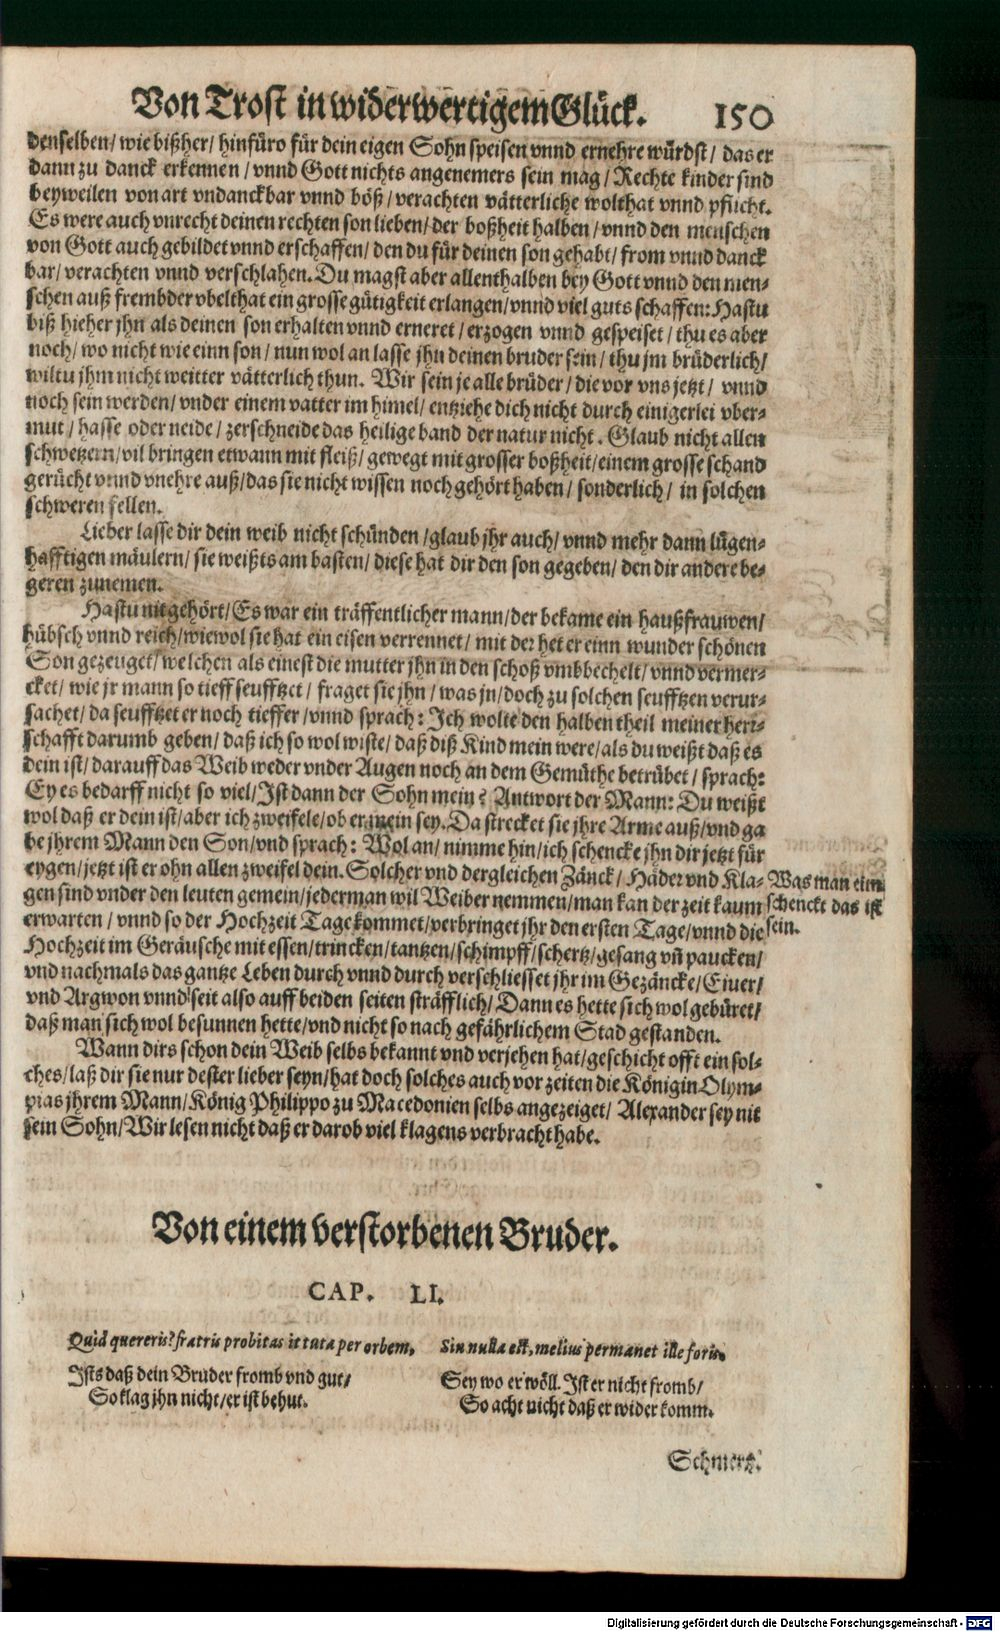 Von Trost in widerwertigem Glück. 150
denselben/ wie bißher/ hinfüro für dein eigen Sohn speisen vnnd ernehre würdst/ das er
dann zu danck erkennen/ vnnd Gott nichts angenemers sein mag/ Rechte kinder sind
beyweilen von art vndanckbar vnnd böß/ verachten vätterliche wolthat vnnd pflicht.
Es were auch vnrecht deinen rechten son lieben/ der boßheit halben/ vnnd den menschen
von Gott auch gebildet vnnd erschaffen/ den du für deinen son gehabt/ from vnnd danck
bar/ verachten vnnd verschlahen. Du magst aber allenthalben bey Gott vnnd den men-
schen auß frembder vbelthat ein grosse gütigkeit erlangen/ vnnd viel guts schaffen: Hastu
biß hieher jhn als deinen son erhalten vnnd erneret/ erzogen vnnd gespeiset/ thu es aber
noch/ wo nicht wie einn son/ nun wol an lasse jhn deinen bruder sein/ thu jm brüderlich/
wiltu jhm nicht weitter vätterlich thun. Wir sein je alle brüder/ die vor vns jetzt/ vnnd
noch sein werden/ vnder einem vatter im himel/ entziehe dich nicht durch einigerlei vber-
mut/ hasse oder neide/ zerschneide das heilige band der natur nicht. Glaub nicht allen
schwetzern/ vil bringen etwann mit fleiß/ gewegt mit grosser boßheit/ einem grosse schand
gerücht vnnd vnehre auß/ das sie nicht wissen noch gehört haben/ sonderlich/ in solchen
schweren fellen.
Lieber lasse dir dein weib nicht schünden/ glaub jhr auch/ vnnd mehr dann lügen-
hafftigen mäulern/ sie weißts am basten/ diese hat dir den son gegeben/ den dir andere be-
geren zunemen.
Hastu nit gehört/ Es war ein träffentlicher mann/ der bekame ein haußfrauwen/
hübsch vnnd reich/ wiewol sie hat ein eisen verrennet/ mit der het er einn wunder schönen
Son gezeuget/ welchen als einest die mutter jhn in den schoß vmbbechelt/ vnnd vermer-
cket/ wie jr mann so tieff seufftzet/ fraget sie jhn/ was jn/ doch zu solchen seufftzen verur-
sachet/ da seufftzet er noch tieffer/ vnnd sprach: Ich wolte den halben theil meiner herr-
schafft darumb geben/ daß ich so wol wiste/ daß diß Kind mein were/ als du weißt daß es
dein ist/ darauff das Weib weder vnder Augen noch an dem Gemüthe betrübet/ sprach:
Ey es bedarff nicht so viel/ Ist dann der Sohn mein? Antwort der Mann: Du weißt
wol daß er dein ist/ aber ich zweifele/ ob er mein sey. Da strecket sie jhre Arme auß/ vnd ga
be jhrem Mann den Son/ vnd sprach: Wol an/ nimme hin/ ich schencke jhn dir jetzt für
eygen/ jetzt ist er ohn allen zweifel dein. Solcher vnd dergleichen Zänck/ Häder vnd Kla-
gen sind vnder den leuten gemein/ jederman wil Weiber nemmen/ man kan der zeit kaum
erwarten/ vnnd so der Hochzeit Tage kommet/ verbringet jhr den ersten Tage/ vnnd die
Hochzeit im Geräusche mit essen/ trincken/ tantzen/ schimpff/ schertz/ gesang vñ paucken/
vnd nachmals das gantze Leben durch vnnd durch verschliesset jhr im Gezäncke/ Eiuer/
vnd Argwon vnnd seit also auff beiden seiten sträfflich/ Dann es hette sich wol gebüret/
daß man sich wol besunnen hette/ vnd nicht so nach gefährlichem Stad gestanden.
Was man eim
schenckt das ist
sein.
Wann dirs schon dein Weib selbs bekannt vnd verjehen hat/ geschicht offt ein sol-
ches/ laß dir sie nur dester lieber seyn/ hat doch solches auch vor zeiten die Königin Olym-
pias jhrem Mann/ König Philippo zu Macedonien selbs angezeiget/ Alexander sey nit
sein Sohn/ Wir lesen nicht daß er darob viel klagens verbracht habe.
Von einem verstorbenen Bruder.
CAP. LI.
Quid quereris? fratris probitas it tuta per orbem,
Sin nulla est, melius permanet ille foris.
Ists daß dein Bruder fromb vnd gut/
So klag jhn nicht/ er ist behut.
Sey wo er wöll. Ist er nicht fromb/
So acht nicht daß er wider komm.
Schmertz.
Digitalisierung gefördert durch die Deutsche Forschungsgemeinschaft - DFG